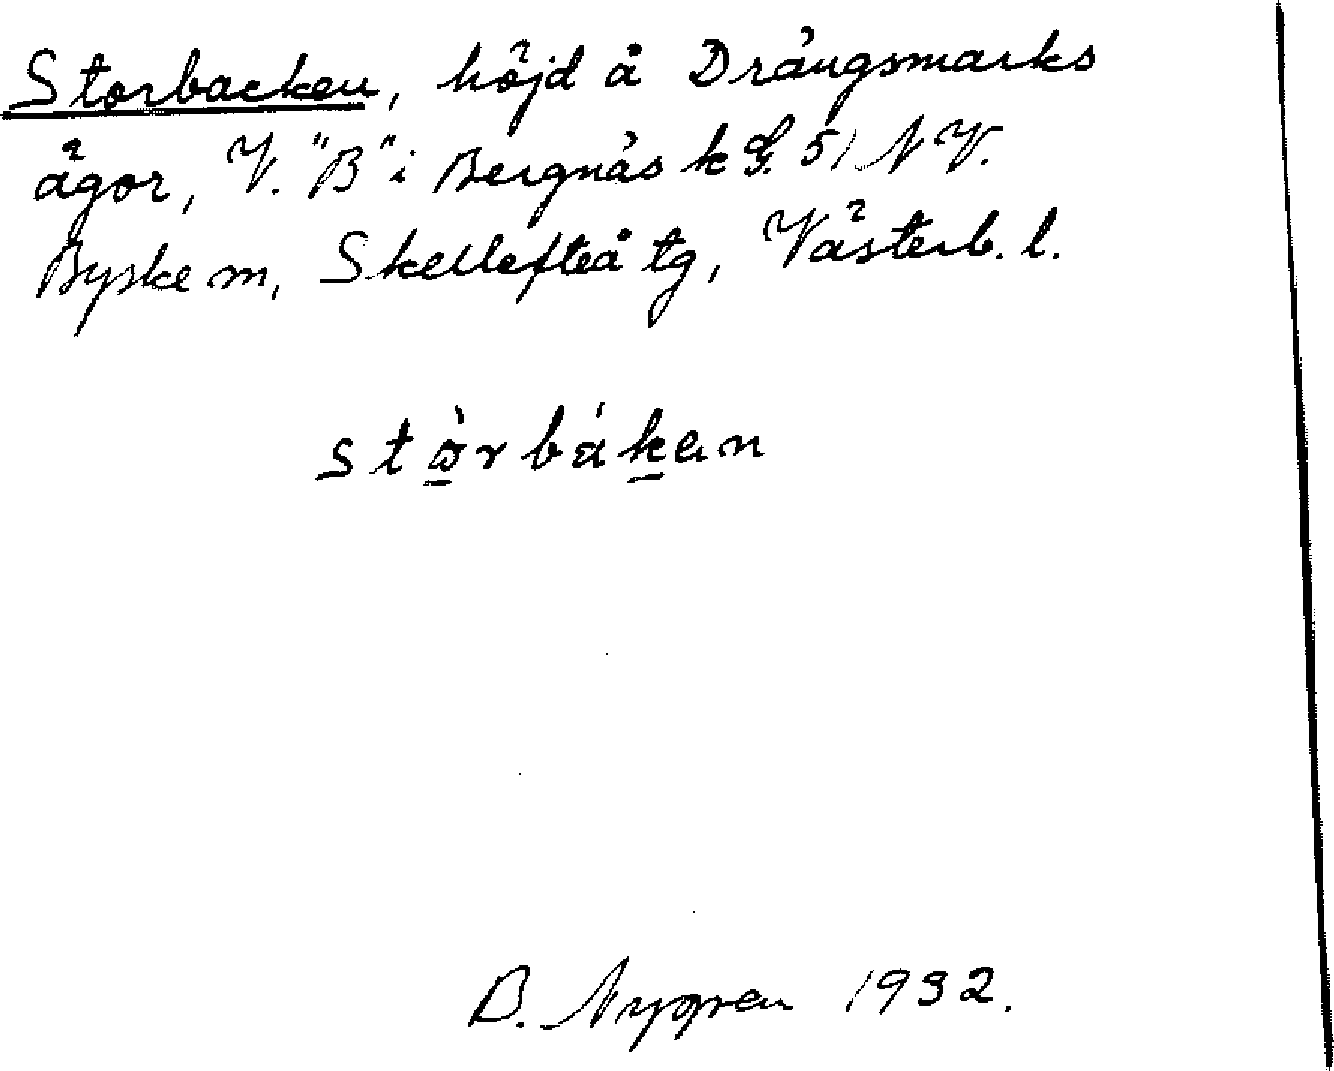 Storbacken, höjd å Drängsmarks
ägor, V. "B" i Bergnäs k G. 51 NV.
Byske m, Skellefteå tg, Västerb. l.
stòrbákan
B. Nygren 1932.